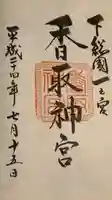 下総國一之宮
香取神宮
平成二十四年七月十五日